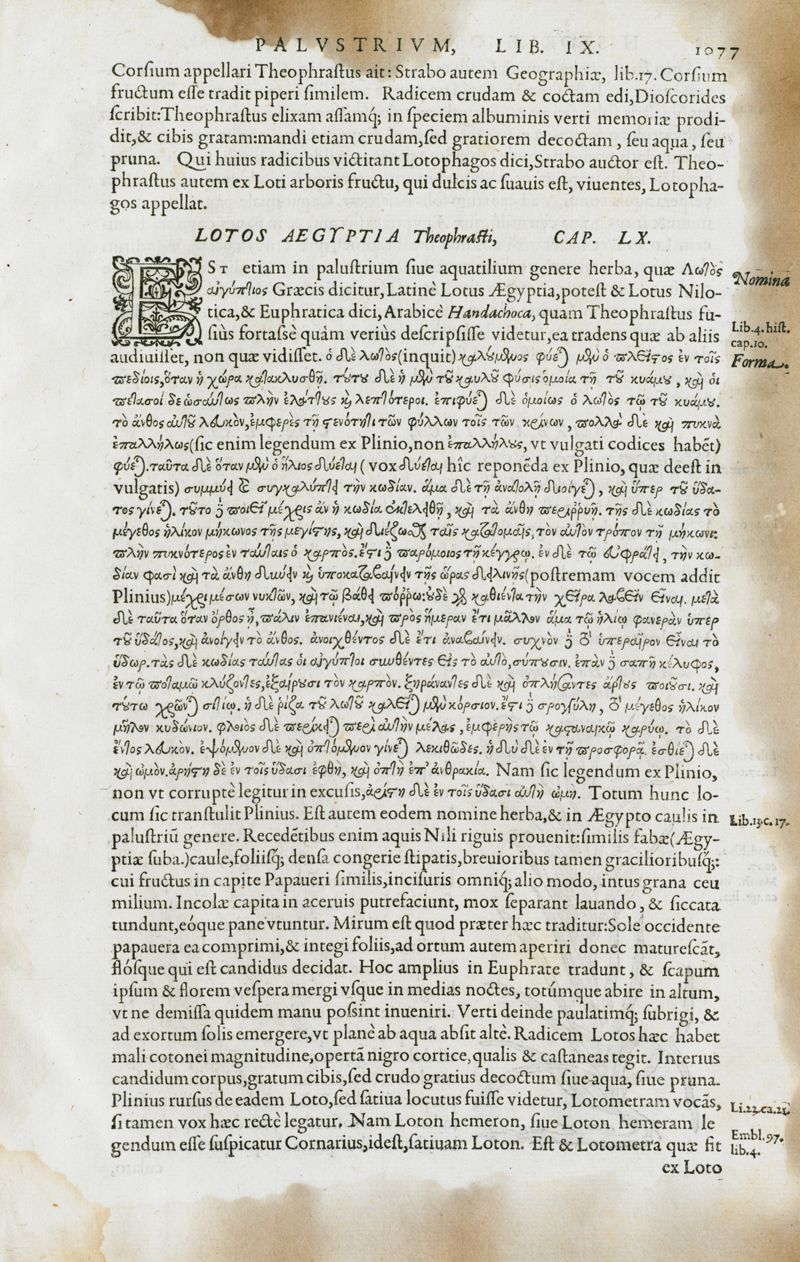 PALVSTRIVM, LIB. IX. 1077
Corſium appellari Theophraſtus ait: Strabo autem Geographiæ, lib.17. Corſium
fructum eſſe tradit piperi ſimilem. Radicem crudam & coctam edi, Dioſcorides
ſcribit: Theophraſtus elixam aſſamq́; in ſpeciem albuminis verti memoriæ prodi-
dit, & cibis gratam: mandi etiam crudam, ſed gratiorem decoctam, ſeu aqua, ſeu
pruna. Qui huius radicibus victitant Lotophagos dici, Strabo auctor eſt. Theo-
phraſtus autem ex Loti arboris fructu, qui dulcis ac ſuauis eſt, viuentes, Lotopha-
gos appellat.
LOTOS AEGYPTIA Theophraſti, CAP. LX.
EST etiam in paluſtrium ſiue aquatilium genere herba, quæ Λωτὸς
αἰγύπτιος Græcis dicitur, Latinè Lotus Ægyptia, poteſt & Lotus Nilo-
tica, & Euphratica dici, Arabicè Handachoca, quam Theophraſtus fu-
ſiùs fortaſſè quàm veriùs deſcripſiſſe videtur, ea tradens quæ ab aliis
audiuiſſet, non quæ vidiſſet. ὁ δὲ λωτὸς (inquit) καλούμενος φύεται μὲν ὁ πλεῖστος ἐν τοῖς
πεδίοις, ὅταν ἡ χώρα κατακλυσθῇ. τούτου δὲ ἡ μὲν τοῦ καυλοῦ φύσις ὁμοία τῇ τοῦ κυάμου, καὶ οἱ
πέτασοι δὲ ὡσαύτως πλὴν ἐλάττους καὶ λεπτότεροι. ἐπιφύεται δὲ ὁμοίως ὁ λωτὸς τῷ τοῦ κυάμου.
τὸ ἄνθος αὐτοῦ λευκὸν, ἐμφερὲς τῇ στενότητι τῶν φύλλων τοῖς τῶν κρίνων, πολλὰ δὲ καὶ πυκνὰ
ἐπαλλήλως (ſic enim legendum ex Plinio, non ἐπαλλήλους, vt vulgati codices habēt)
φύεται. ταῦτα δὲ ὅταν μὲν ὁ ἥλιος δύεται (vox δύεται hîc reponēda ex Plinio, quæ deeſt in
vulgatis) συμμύει καὶ συγκαλύπτει τὴν κωδίαν. ἅμα δὲ τῇ ἀνατολῇ διοίγεται, καὶ ὑπὲρ τοῦ ὕδα-
τος γίνεται. τοῦτο δὲ ποιεῖ μέχρις ἂν ἡ κωδία ἐκτελεωθῇ, καὶ τὰ ἄνθη περιῤῥυῇ. τῆς δὲ κωδίας τὸ
μέγεθος ἡλίκον μήκωνος τῆς μεγίστης, καὶ διέζωσται ταῖς κατατομαῖς, τὸν αὐτὸν τρόπον τῇ μήκωνι:
πλὴν πυκνότερος ἐν ταύταις ὁ καρπός. ἔστι δὲ παρόμοιος τῇ κέγχρῳ. ἐν δὲ τῷ εὐφράτῃ, τὴν κω-
δίαν φασὶ καὶ τὰ ἄνθη δύειν καὶ ὑποκαταβαίνειν τῆς ὥρας δειλινῆς (poſtremam vocem addit
Plinius) μέχρι μέσων νυκτῶν, καὶ τῷ βάθει πόῤῥω: οὐδὲ γὰρ καθιέντα τὴν χεῖρα λαβεῖν εἶναι. μετὰ
δὲ ταῦτα ὅταν ὄρθος ᾖ, πάλιν ἐπανιέναι, καὶ πρὸς ἥμεραν ἔτι μᾶλλον ἅμα τῷ ἡλίῳ φανερὰν ὑπὲρ
τοῦ ὕδατος, καὶ ἀνοίγειν τὸ ἄνθος. ἀνοιχθέντος δὲ ἔτι ἀναβαίνειν. συχνὸν δὲ τὸ ὑπεραῖρον εἶναι τὸ
ὕδωρ. τὰς δὲ κωδίας ταύτας οἱ αἰγύπτιοι συνθέντες εἰς τὸ αὐτὸ, σήπουσιν. ἐπὰν δὲ σαπῇ κέλυφος,
ἐν τῷ ποταμῷ κλύζοντες, ἐξαιροῦσι τὸν καρπόν. ξηράναντες δὲ καὶ πλήσαντες ἄρτους ποιοῦσι. καὶ
τούτῳ χρῶνται σιτίῳ. ἡ δὲ ῥίζα τοῦ λωτοῦ καλεῖται μὲν κόρσιον. ἔστι δὲ στρογγύλη, τὸ μέγεθος ἡλίκον
μῆλον κυδώνιον. φλοιὸς δὲ περίκειται περὶ αὐτὴν μέλας, ἐμφερὴς τῷ κασταναικῷ καρύῳ. τὸ δὲ
ἐντὸς λευκόν. ἑψόμενον δὲ καὶ ὀπτόμενον γίνεται λεκιθῶδες. ἡδὺ δὲ ἐν τῇ προσφορᾷ. ἐσθίεται δὲ
καὶ ὠμὸν. ἀρίστη δὲ ἐν τοῖς ὕδασι ἐφθὴ, καὶ ὀπτὴ ἐπ' ἀνθρακία. Nam ſic legendum ex Plinio,
non vt corruptè legitur in excuſis, ἀρίστη δὲ ἐν τοῖς ὕδασι αὐτὴ ὠμή. Totum hunc lo-
cum ſic tranſtulit Plinius. Eſt autem eodem nomine herba, & in Ægypto caulis in
paluſtriū genere. Recedētibus enim aquis Nili riguis prouenit: ſimilis fabæ (Ægy-
ptiæ ſuba.) caule, foliiſq́; denſa congerie ſtipatis, breuioribus tamen gracilioribuſq́;:
cui fructus in capite Papaueri ſimilis, inciſuris omniq́; alio modo, intus grana ceu
milium. Incolæ capita in aceruis putrefaciunt, mox ſeparant lauando, & ſiccata
tundunt, eóque pane vtuntur. Mirum eſt quod præter hæc traditur: Sole occidente
papauera ea comprimi, & integi foliis, ad ortum autem aperiri donec matureſcāt,
flóſque qui eſt candidus decidat. Hoc amplius in Euphrate tradunt, & ſcapum
ipſum & florem veſpera mergi vſque in medias noctes, totúmque abire in altum,
vt ne demiſſa quidem manu poſsint inueniri. Verti deinde paulatimq́; ſubrigi, &
ad exortum ſolis emergere, vt planè ab aqua abſit altè. Radicem Lotos hæc habet
mali cotonei magnitudine, opertā nigro cortice, qualis & caſtaneas tegit. Interius
candidum corpus, gratum cibis, ſed crudo gratius decoctum ſiue aqua, ſiue pruna.
Plinius rurſus de eadem Loto, ſed ſatiua locutus fuiſſe videtur, Lotometram vocās,
ſi tamen vox hæc rectè legatur. Nam Loton hemeron, ſiue Loton hemeram le
gendum eſſe ſuſpicatur Cornarius, id eſt, ſatiuam Loton. Eſt & Lotometra quæ fit
ex Loto
Nomina
Lib.4. hiſt.
cap.10.
Forma.
Lib.13. c. 17.
Li.22. ca.21.
Embl.97.
lib.4.